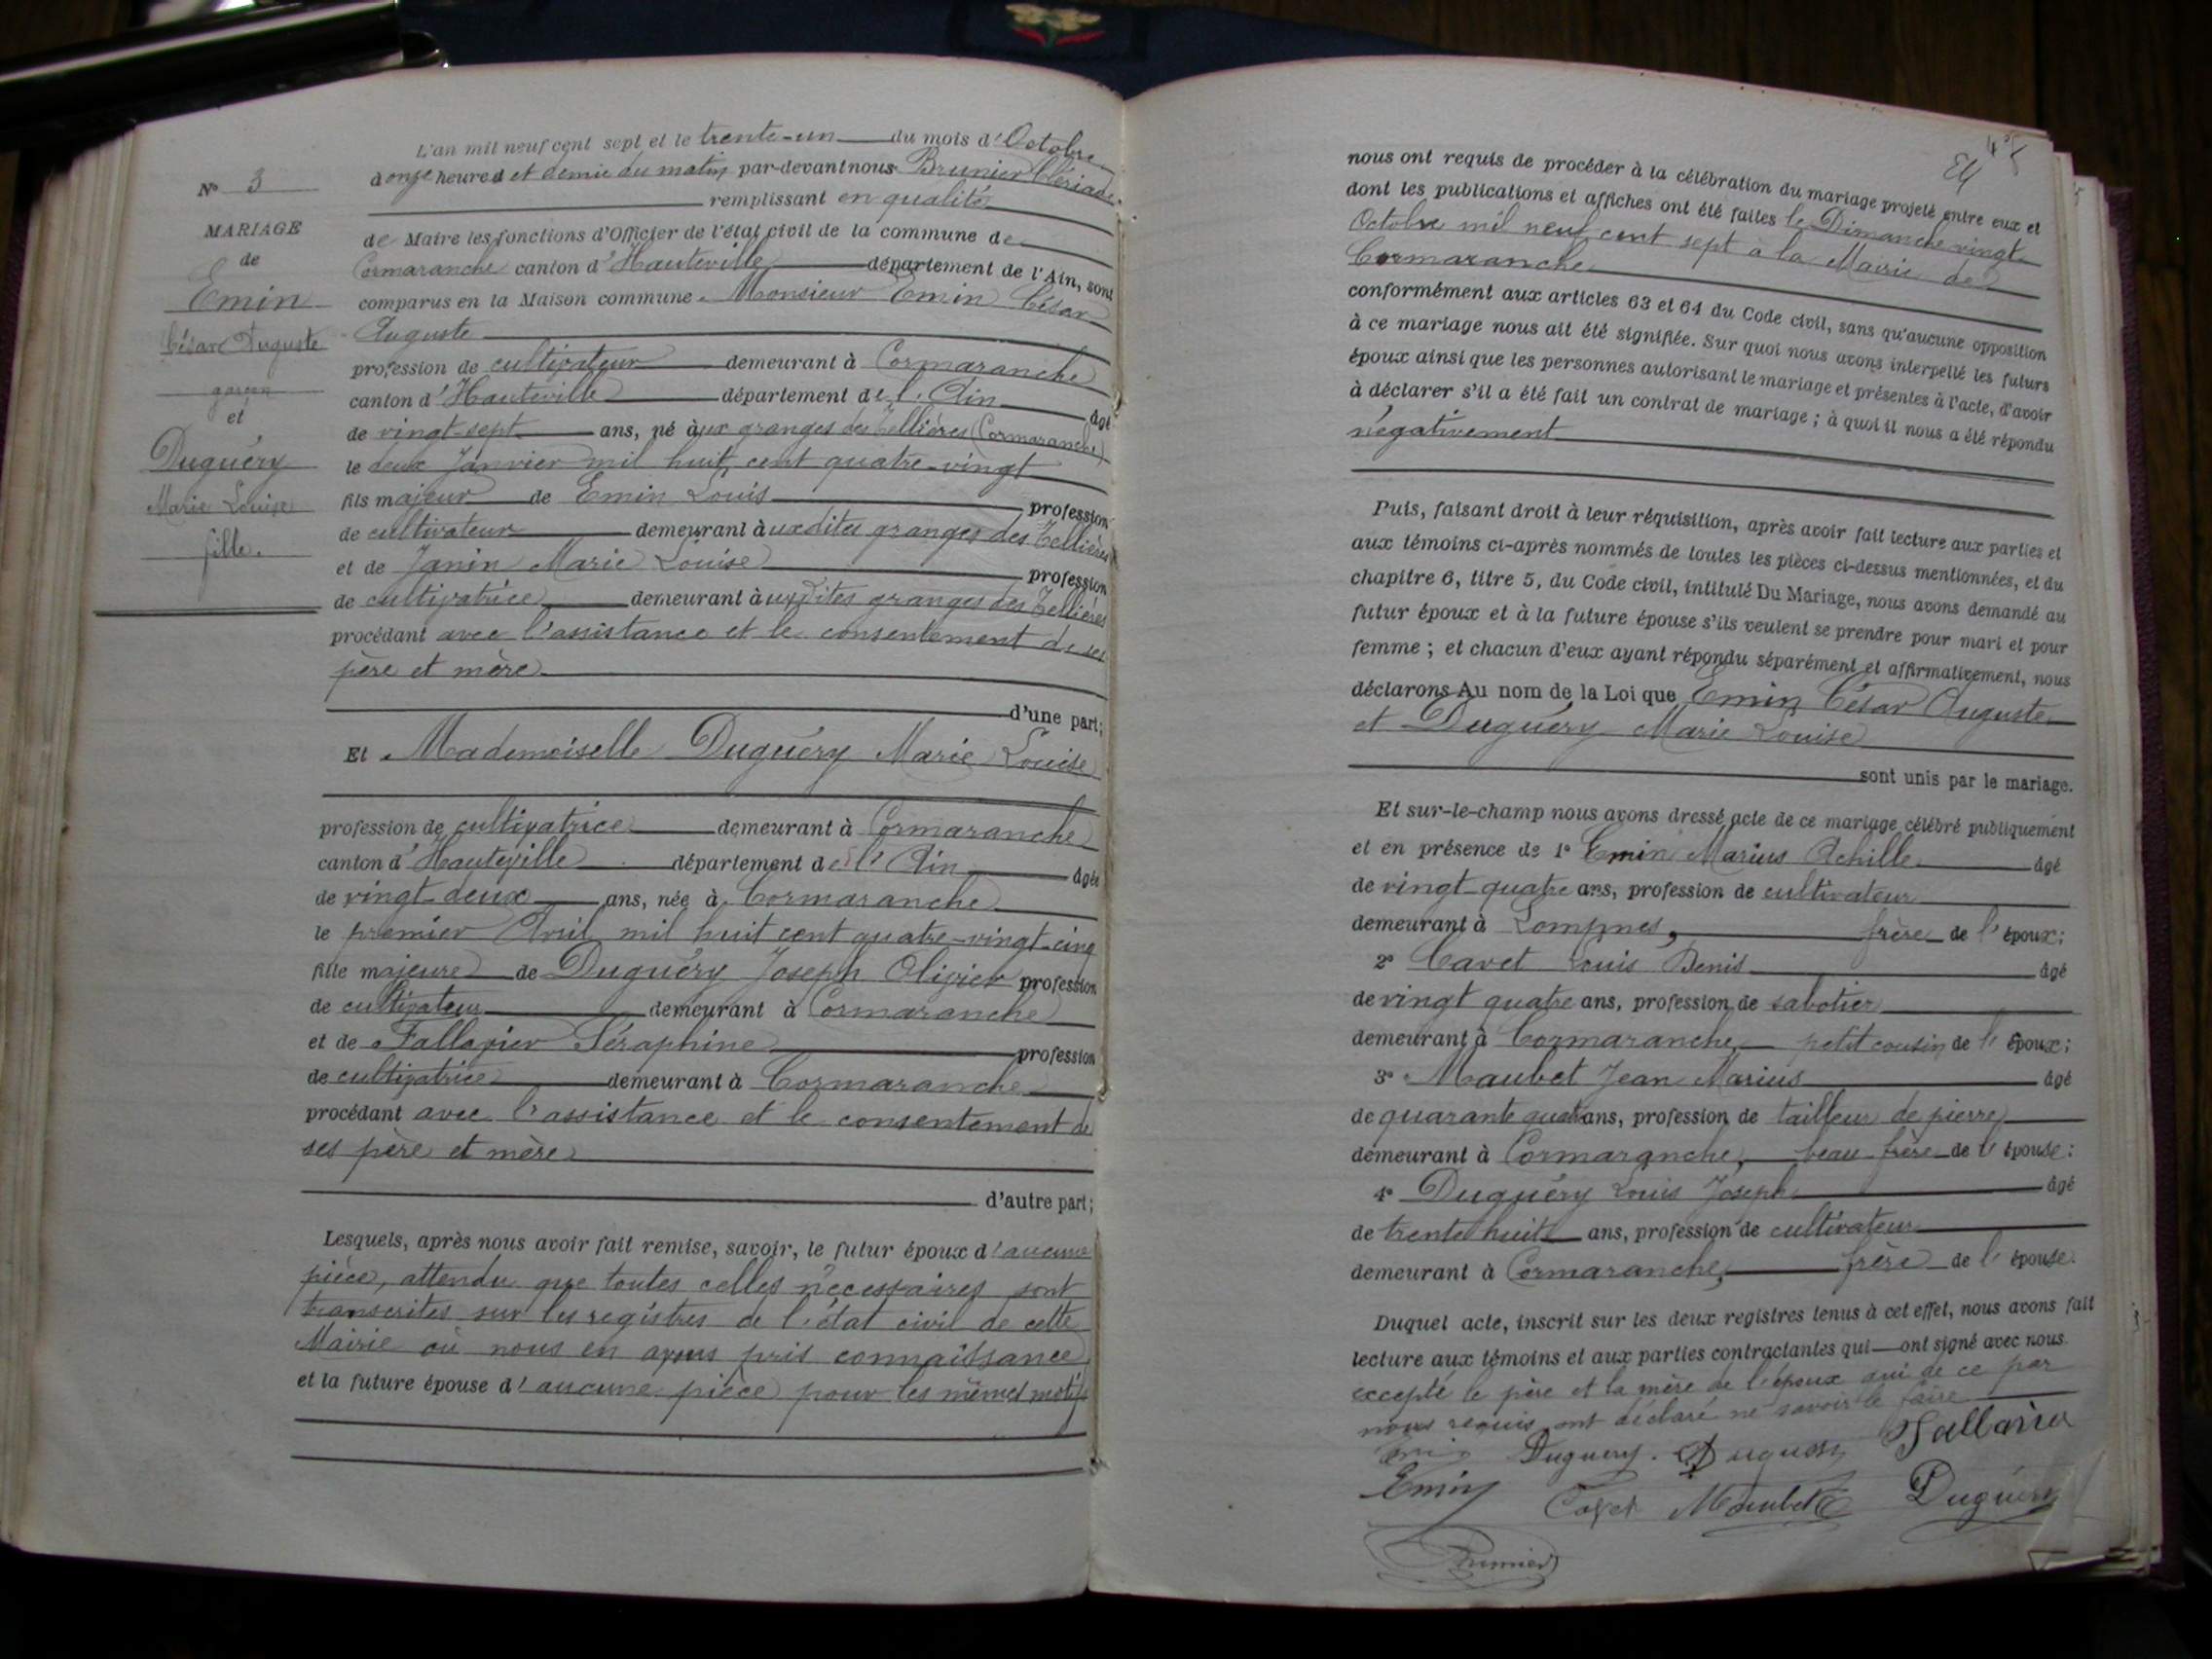 N° 3
MARIAGE
de
Emin
César Auguste
garçon
et
Duguéry
Marie Louise
fille.
L'an mil neuf cent sept et le trente-un du mois d'Octobre
à onze heures et demie du matin par-devant nous Brunier Clériade
remplissant en qualité
de Maire les fonctions d'Officier de l'état civil de la commune de
Cormaranche canton d'Hauteville département de l'Ain, sont
comparus en la Maison commune. Monsieur Emin César
Auguste
profession de cultivateur demeurant à Cormaranche
canton d'Hauteville département de l'Ain âgé
de vingt-sept ans, né aux granges des Zellières (Cormaranche)
le deux Janvier mil huit cent quatre-vingt
fils majeur de Emin Louis profession
de cultivateur demeurant auxdites granges des Zellières
et de Janin Marie Louise profession
de cultivatrice demeurant auxdites granges des Zellières
procédant avec l'assistance et le consentement de ses
père et mère
d'une part;
Et Mademoiselle Duguéry Marie Louise
profession de cultivatrice demeurant à Cormaranche
canton d'Hauteville département de l'Ain âgée
de vingt-deux ans, née à Cormaranche
le premier Avril mil huit cent quatre-vingt-cinq
fille majeure de Duguéry Joseph Olivier profession
de cultivateur demeurant à Cormaranche
et de Fallavier Séraphine profession
de cultivatrice demeurant à Cormaranche
procédant avec l'assistance et le consentement de
ses père et mère
d'autre part;
Lesquels, après nous avoir fait remise, savoir, le futur époux d'aucune
pièce, attendu que toutes celles nécessaires sont
transcrites sur les registres de l'état civil de cette
Mairie où nous en avons pris connaissance
et la future épouse d'aucune pièce pour les mêmes motifs
nous ont requis de procéder à la célébration du mariage projeté entre eux et
dont les publications et affiches ont été faites le Dimanche vingt
Octobre mil neuf cent sept à la Mairie de
Cormaranche
conformément aux articles 63 et 64 du Code civil, sans qu'aucune opposition
à ce mariage nous ait été signifiée. Sur quoi nous avons interpellé les futurs
époux ainsi que les personnes autorisant le mariage et présentes à l'acte, d'avoir
à déclarer s'il a été fait un contrat de mariage; à quoi il nous a été répondu
négativement
Puis, faisant droit à leur réquisition, après avoir fait lecture aux parties et
aux témoins ci-après nommés de toutes les pièces ci-dessus mentionnées, et du
chapitre 6, titre 5, du Code civil, intitulé Du Mariage, nous avons demandé au
futur époux et à la future épouse s'ils veulent se prendre pour mari et pour
femme; et chacun d'eux ayant répondu séparément et affirmativement, nous
déclarons Au nom de la Loi que Emin César Auguste
et Duguéry Marie Louise
sont unis par le mariage.
Et sur-le-champ nous avons dressé acte de ce mariage célébré publiquement
et en présence de 1° Emin Marius Achille âgé
de vingt quatre ans, profession de cultivateur
demeurant à Lompnes, frère de l'époux;
2° Cavet Louis Denis âgé
de vingt quatre ans, profession de sabotier
demeurant à Cormaranche, petit cousin de l'époux;
3° Maubet Jean Marius âgé
de quarante quatre ans, profession de tailleur de pierre
demeurant à Cormaranche, beau-frère de l'épouse;
4° Duguéry Louis Joseph âgé
de trente huit ans, profession de cultivateur
demeurant à Cormaranche, frère de l'épouse.
Duquel acte, inscrit sur les deux registres tenus à cet effet, nous avons fait
lecture aux témoins et aux parties contractantes qui ont signé avec nous
excepté le père et la mère de l'époux qui de ce par
nous requis ont déclaré ne savoir le faire
Emin Duguery. Duguery Fallavier
Emin Cavet Maubet Duguéry
Brunier